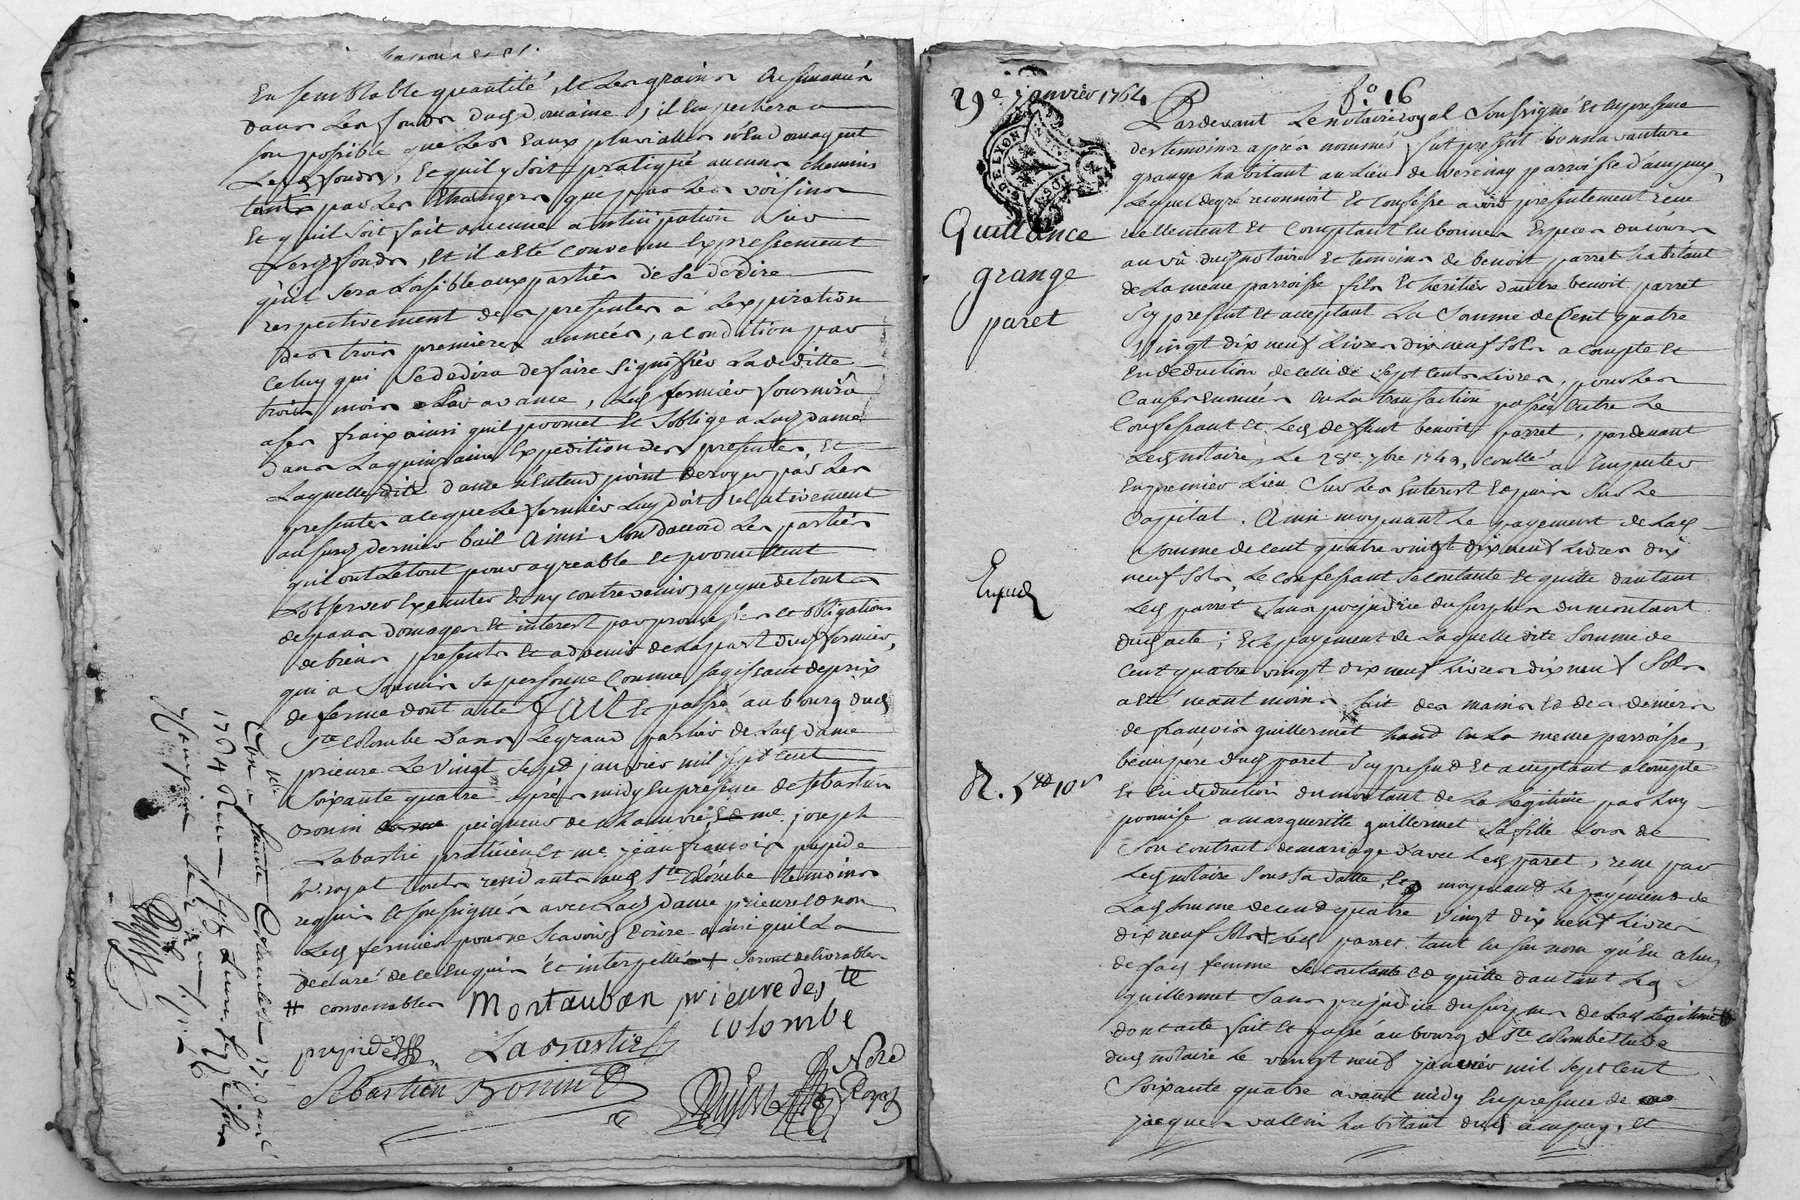 En semblable quantité, et les grains
dans les fonds dud domaine, il empechera a
son possible que les Eaux pluvialles n'Endomagent
lesd fonds, Et quil y soit pratiqué aucuns chemins
tant par les Etrangers que par les voisins
Et quil soit fait aucune anticipation sur
lesd fonds, et il a eté convenu Expressement
quil sera loisible aux parties de se dedire
respectivement des presentes a lexpiration
des trois premieres années, a condition par
celuy qui se dedira de faire signiffier la deditte
trois mois par avance, led fermier fournira
a ses fraix ainsi quil promet et soblige a lad dame
dans la quinzaine Expedition des presentes, Et
laquelle dite dame n'entend point deroger par les
presentes a ce que le fermier luy doit relativement
au susd dernier bail ainsi sont daccord les parties
qui ont le tout pour agreable et promettent
lobserver Executer et ny contrevenir a peyne de touts
depans domages et interest par promesses et obligation
de biens presents et advenir de la part dud fermier,
qui a soumis sa personne comme sagissant de prix
de ferme dont acte fait et passé au bourg dud
Ste Colombe dans le grand parloir de lad dame
prieure le vingt sept janvier mil sept cent
soixante quatre après midy en presence de sebastien
bonnin peigneur de chanvre, joseph
Labastie praticien et me jean françois pupid
touts residants aud Ste Colombe temoins
requis et soussignés avec lad dame prieure et non
led fermier pour ne scavoir Ecrire ainsi quil la
declaré de ce Enquis et interpellé + seront delivrables
# convenables
Montauban prieure de ste
colombe
Labastie
Sebastien Bonnin
Nore
Royal
Con a sainte Colombe le 27. janv
1764
29e janvier 1764
fo 16
DE LYON
Quittance
grange
paret
Exped
R. 5tt 10s
Pardevant Le notaire royal soussigné et En presence
des temoins après nommés fut present bonnavanture
grange habitant au lieu de verenay parroisse d'ampuys,
Lequel de gré reconnoit Et confesse avoir presentement reçu
reellement et comptant en bonnes Especes du cours
au vû dud notaire et temoins de benoit parret habitant
de la meme parroisse fils et heritier d'autre benoit parret
icy present et acceptant La somme de Cent quatre
vingt dix neuf Livres dix neuf sols a compte Et
en deduction de celle de sept cents Livres, pour les
causes Enoncées En la transaction passée Entre le
confessant et led deffunt benoit parret, pardevant
led notaire, le 28e 7bre 1749, a Imputer
En premier lieu sur les Interest Et puis sur le
capital. Ainsi moyenant le payement de lad
somme de cent quatre vingt dix neuf livres dix
neuf sols, le confessant se contante et quitte dautant
led parret, sans prejudice du surplus du montant
dud acte; et le payement de laquelle dite somme de
cent quatre vingt dix neuf livres dix neuf sols
a eté neant moins fait des mains et des deniers
de françois guillermet hand en la meme parroisse,
beaupere dud paret icy present et acceptant a compte
et en deduction du montant de la legitime par luy
promise a marguerite guillermet sa fille lors de
son contrat de mariage d'avec led paret, recu par
led notaire sous sa datte, et moyenant le payement de
lad somme de cent quatre vingt dix neuf livres
dix neuf sols led parret tant en son nom qu'en celuy
de sad femme se contante et quitte dautant led
guillermet sans prejudice du surplus de lad legitime
dont acte fait et passé au bourg de ste colombe Etude
dud notaire le vingt neuf janvier mil sept cent
soixante quatre avant midy En presence de
jacques vallin habitant dud ampuy, et